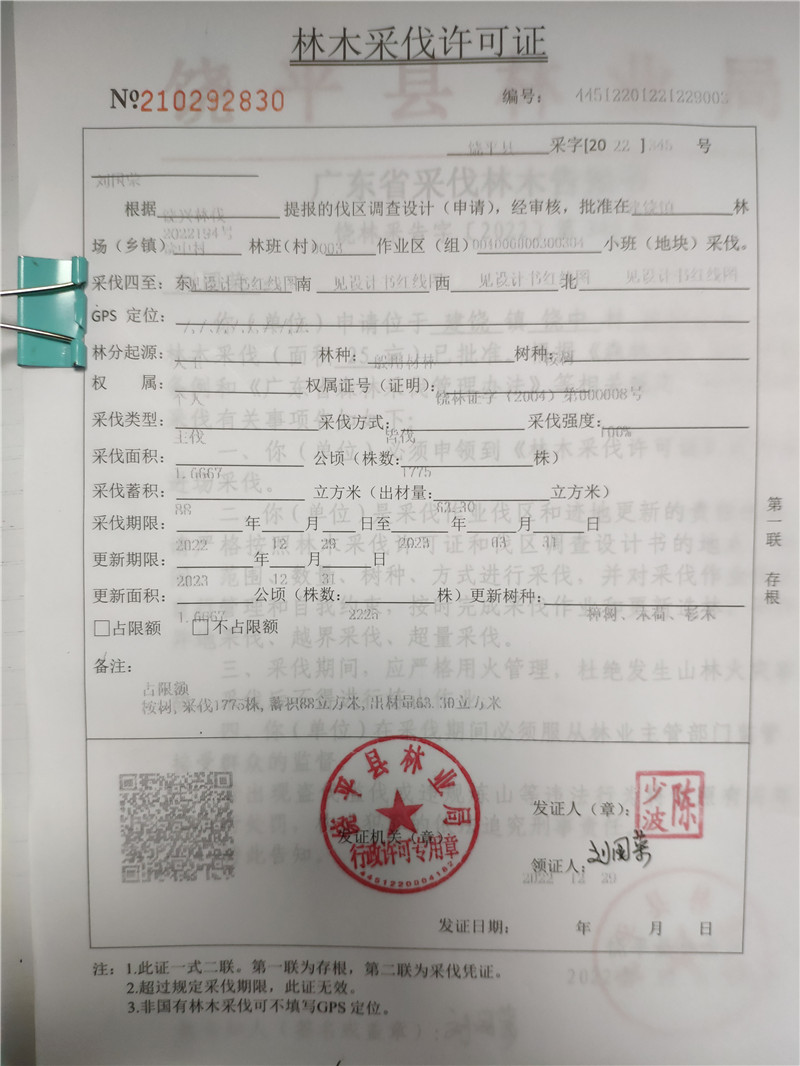 林木采伐许可证
№210292830
编号: 44512201221229003
饶平县 采字[20 22 ]345 号
刘国荣
根据 提报的伐区调查设计(申请),经审核,批准在 建饶镇 林
场(乡镇) 饶中村 林班(村) 0003 作业区(组) 小班(地块)采伐。
采伐四至: 东 见设计书红线图 南 见设计书红线图 西 见设计书红线图 北 见设计书红线图
GPS 定位: /./././././././.
林分起源: 人工 林种: 一般用材林 树种: 桉树
权 属: 个人 权属证号(证明): 饶林证字(2004)第000008号
采伐类型: 主伐 采伐方式: 皆伐 采伐强度: 100%
采伐面积: 1.6667 公顷(株数: 1775 株)
采伐蓄积: 88 立方米(出材量: 63.30 立方米)
采伐期限: 2022 年 12 月 29 日至 2023 年 03 月 31 日
更新期限: 2023 年 12 月 31 日
更新面积: 1.6667 公顷(株数: 2225 株)更新树种: 樟树、木荷、杉木
□占限额 □不占限额
备注:
占限额
桉树,采伐1775株,蓄积88立方米,出材量63.30立方米
饶平县林业局
行政许可专用章
4451220004182
发证机关(章)
发证人(章): 陈少波
领证人: 刘国荣
2022 12 29
发证日期: 年 月 日
第一联 存根
注: 1.此证一式二联。第一联为存根,第二联为采伐凭证。
2.超过规定采伐期限,此证无效。
3.非国有林木采伐可不填写GPS定位。